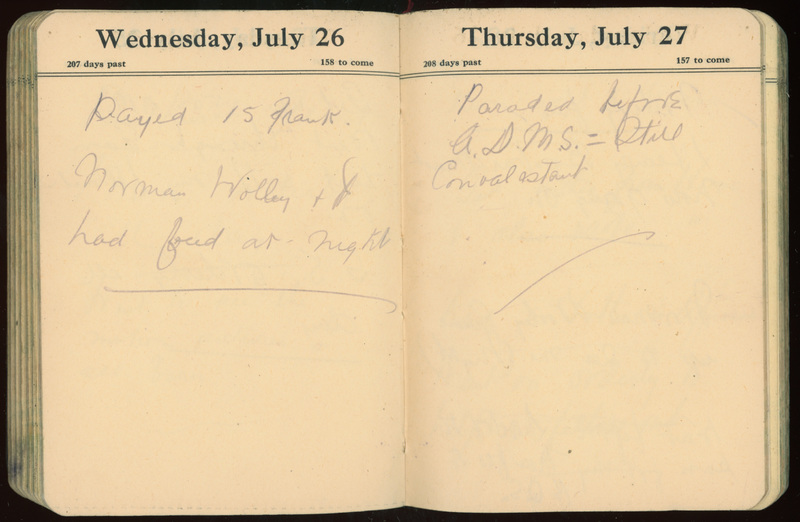 Wednesday, July 26
207 days past 158 to come
Payed 15 Frank.
Norman Wolley + I
had feed at night
Thursday, July 27
208 days past 157 to come
Paraded before
A.D.M.S. = Still
Convalestant